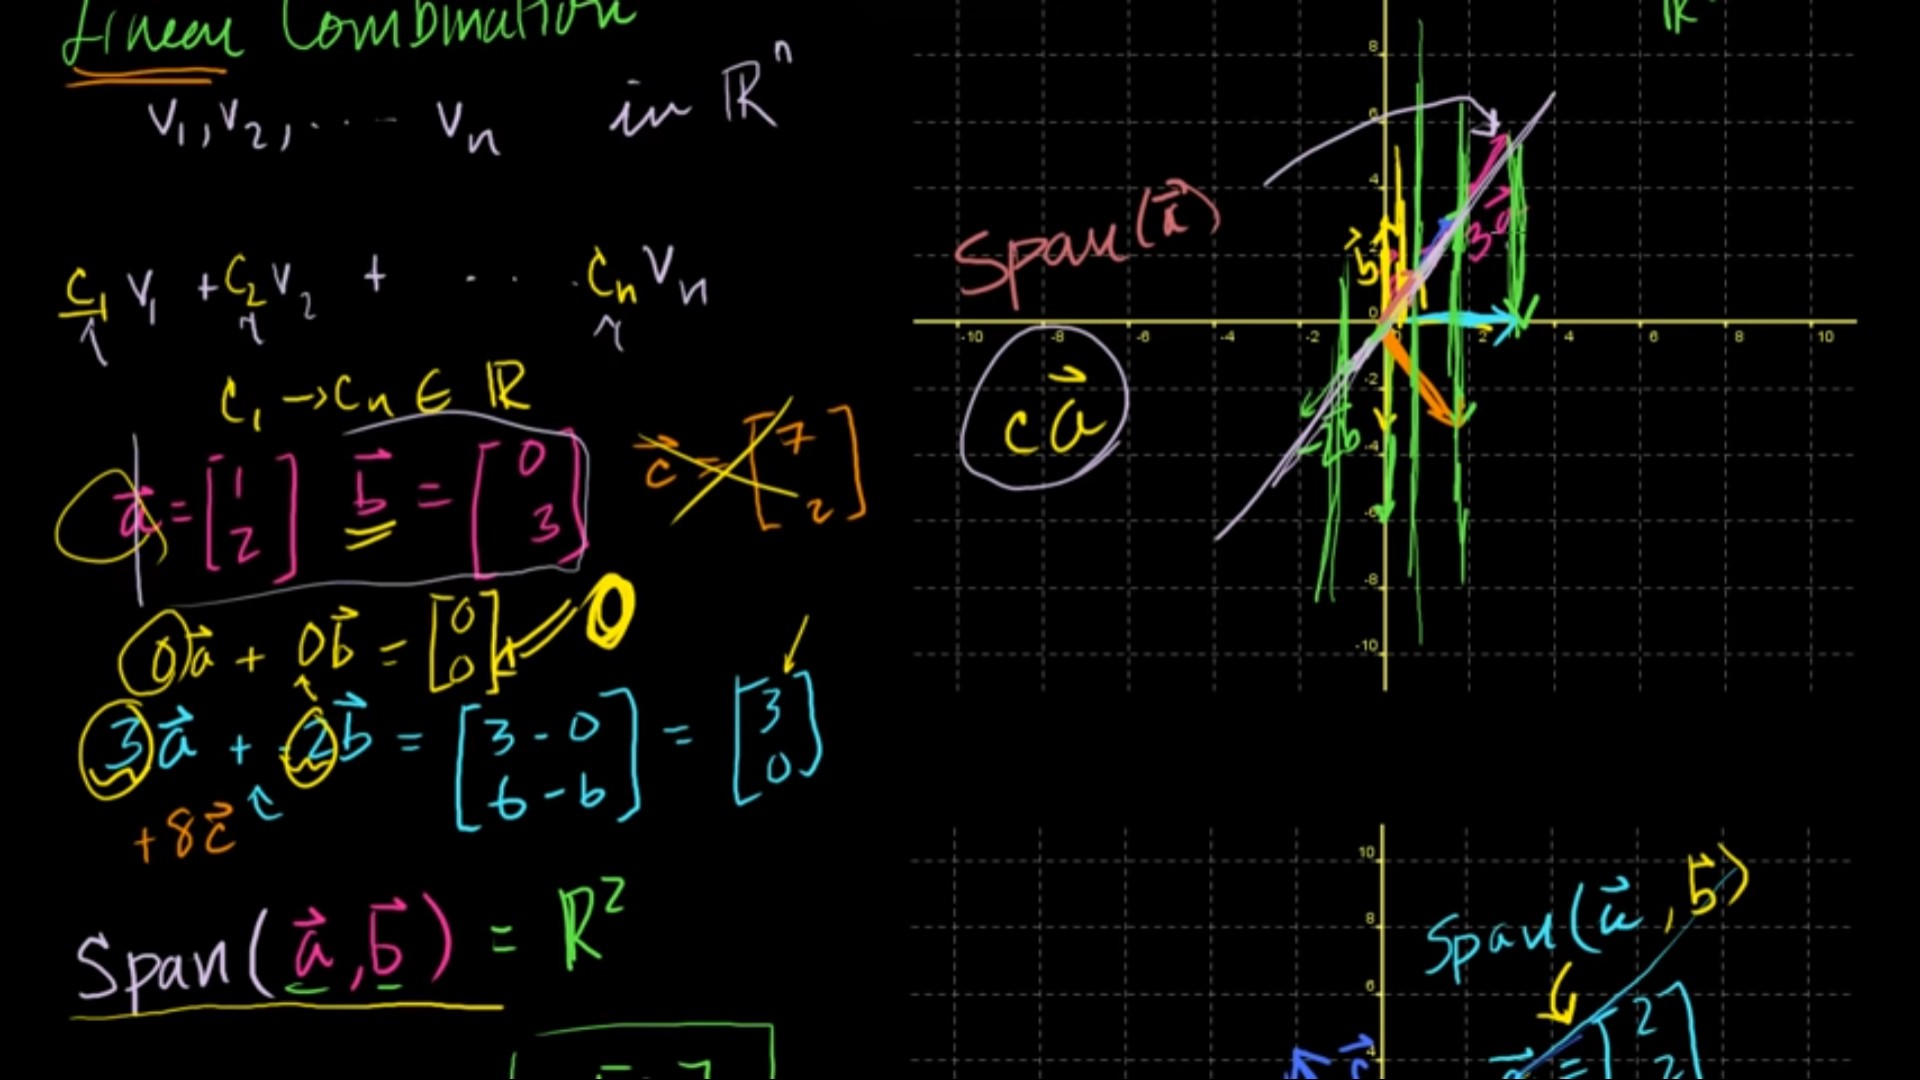 Linear Combination
v₁, v₂, ... vₙ in ℝⁿ
c₁v₁ + c₂v₂ + ... cₙvₙ
c₁ → cₙ ∈ ℝ
a⃗ = [1 2] b⃗ = [0 3] c⃗ = [7 2]
0a⃗ + 0b⃗ = [0 0] 0
3a⃗ + -2b⃗ = [3-0 6-6] = [3 0]
+8c⃗
Span(a⃗, b⃗) = ℝ²
ℝ
Span(a⃗)
ca⃗
b⃗
3a⃗
-2b
8
6
4
2
0
-10 -8 -6 -4 -2 2 4 6 8 10
-2
-4
-6
-8
-10
10
8
6
4
Span(a⃗, b⃗)
= [2
2